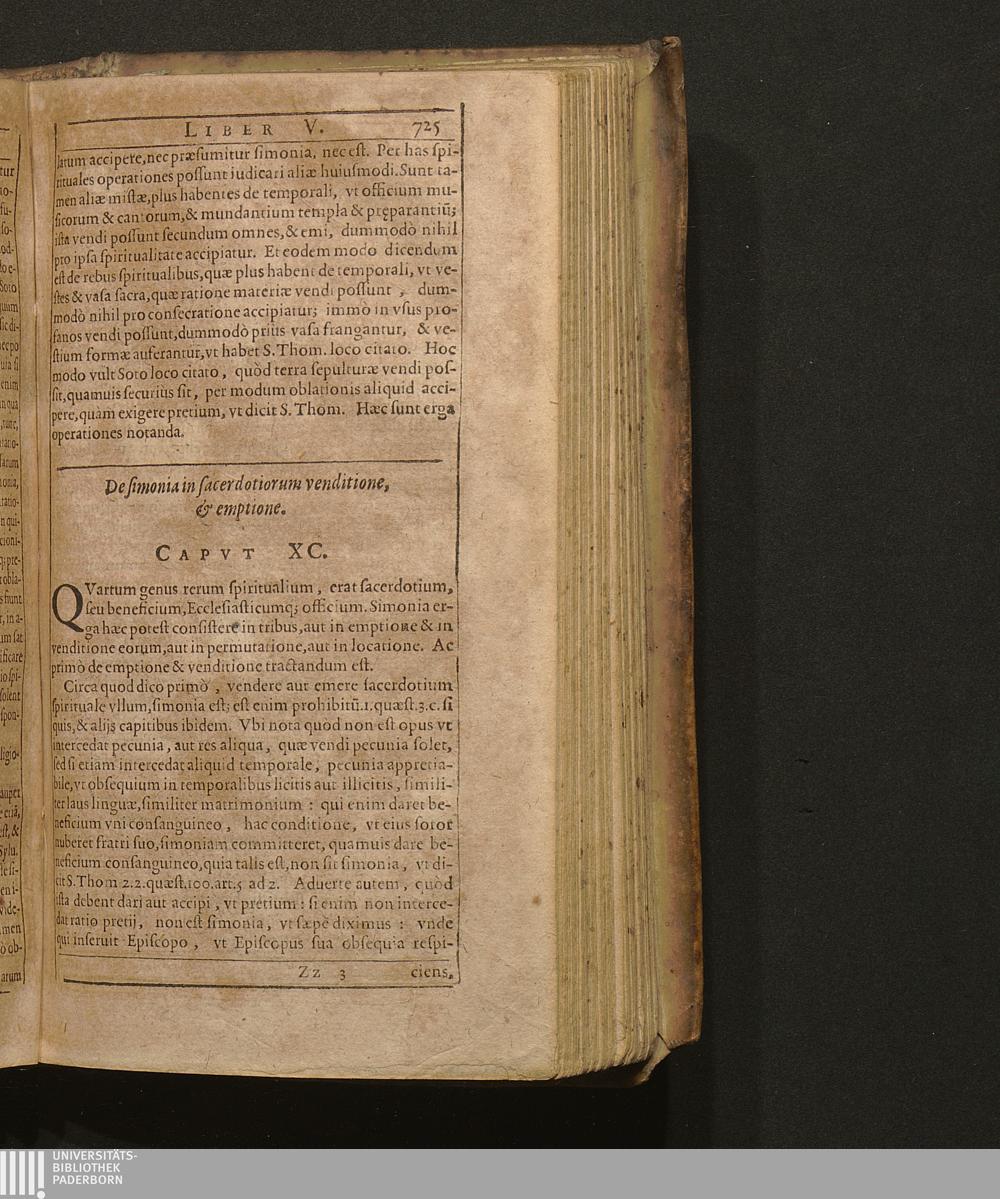 LIBER V. 725
larum accipere, nec præsumitur simonia, nec est. Per has spi-
rituales operationes possunt iudicari aliæ huiusmodi. Sunt ta-
men aliæ mistæ, plus habentes de temporali, vt officium mu-
sicorum & cantorum, & mundantium templa & pręparantiũ;
ista vendi possunt secundum omnes, & emi, dummodò nihil
pro ipsa spiritualitate accipiatur. Et eodem modo dicendum
est de rebus spiritualibus, quæ plus habent de temporali, vt ve-
stes & vasa sacra, quæ ratione materiæ vendi possunt, dum-
modò nihil pro consecratione accipiatur; immò in vsus pro-
fanos vendi possunt, dummodò priùs vasa frangantur, & ve-
stium formæ auferantur, vt habet S. Thom. loco citato. Hoc
modo vult Soto loco citato, quòd terra sepulturæ vendi pos-
sit, quamuis securiùs sit, per modum oblationis aliquid acci-
pere, quàm exigere pretium, vt dicit S. Thom. Hæc sunt erga
operationes notanda.
De simonia in sacerdotiorum venditione,
& emptione.
CAPVT XC.
QVartum genus rerum spiritualium, erat sacerdotium,
seu beneficium, Ecclesiasticumq; officium. Simonia er-
ga hæc potest consistere in tribus, aut in emptione & in
venditione eorum, aut in permutatione, aut in locatione. Ac
primò de emptione & venditione tractandum est.
Circa quod dico primò, vendere aut emere sacerdotium
spirituale vllum, simonia est; est enim prohibitũ. 1. quæst. 3. c. si
quis, & alijs capitibus ibidem. Vbi nota quòd non est opus vt
intercedat pecunia, aut res aliqua, quæ vendi pecunia solet,
sed si etiam intercedat aliquid temporale, pecunia appretia-
bile, vt obsequium in temporalibus licitis aut illicitis, simili-
ter laus linguæ, similiter matrimonium: qui enim daret be-
neficium vni consanguineo, hac conditione, vt eius soror
nuberet fratri suo, simoniam committeret, quamuis dare be-
neficium consanguineo, quia talis est, non sit simonia, vt di-
cit S. Thom 2. 2. quæst. 100. art. 5 ad 2. Aduerte autem, quòd
ista debent dari aut accipi, vt pretium: si enim non interce-
dat ratio pretij, non est simonia, vt sæpè diximus: vnde
qui inseruit Episcopo, vt Episcopus sua obsequia respi-
Zz 3 ciens,
UNIVERSITÄTS-
BIBLIOTHEK
PADERBORN